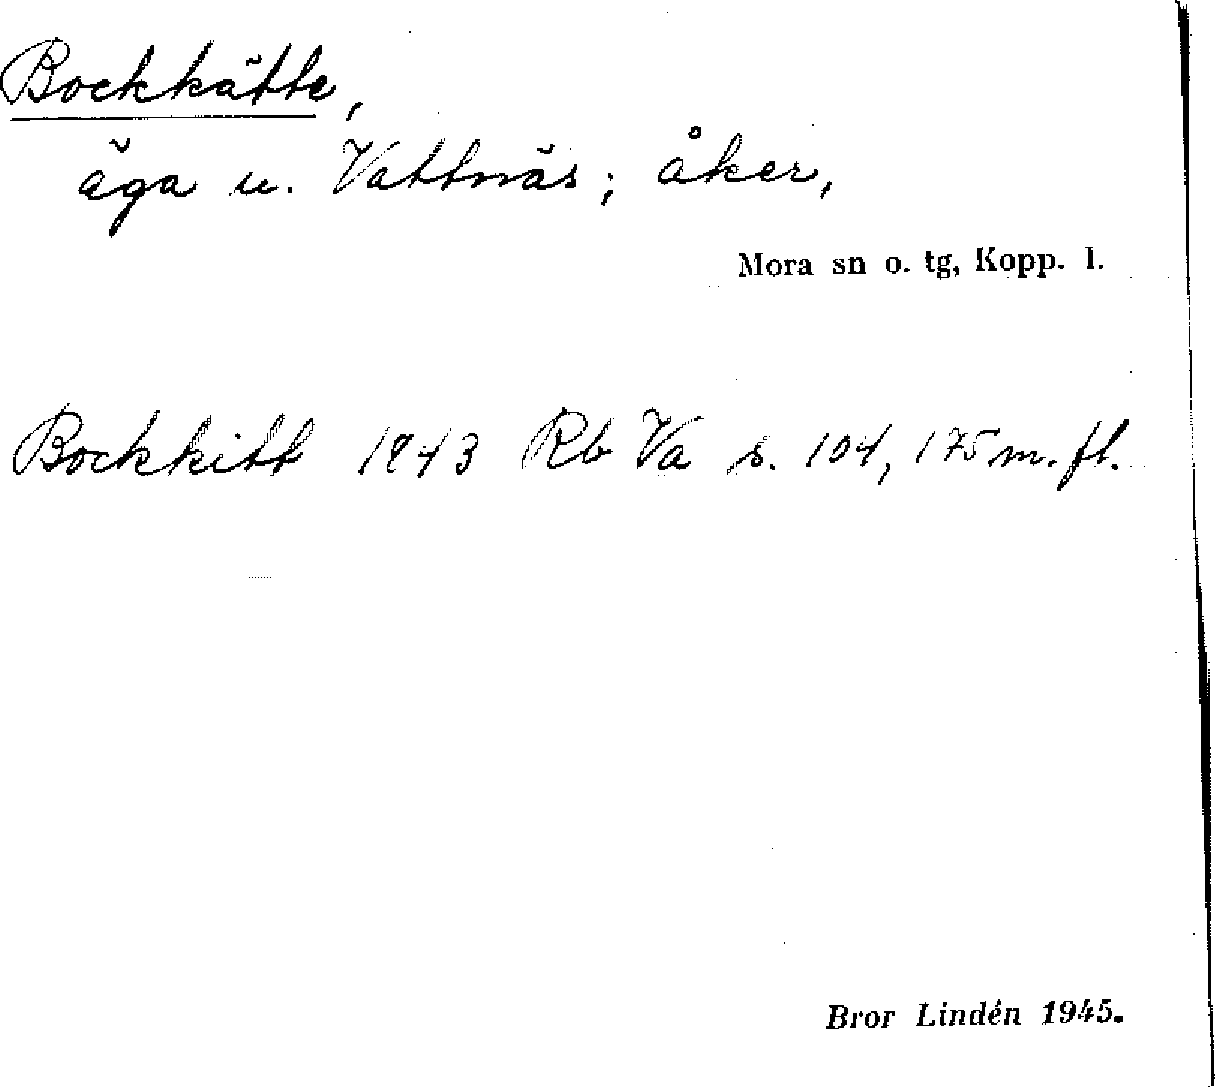 Bockkätte,
äga u. Vattnäs; åker,
Mora sn o. tg, Kopp. l.
Bockkitt 1843 Rb Va s. 104, 175 m. fl.
Bror Lindén 1945.